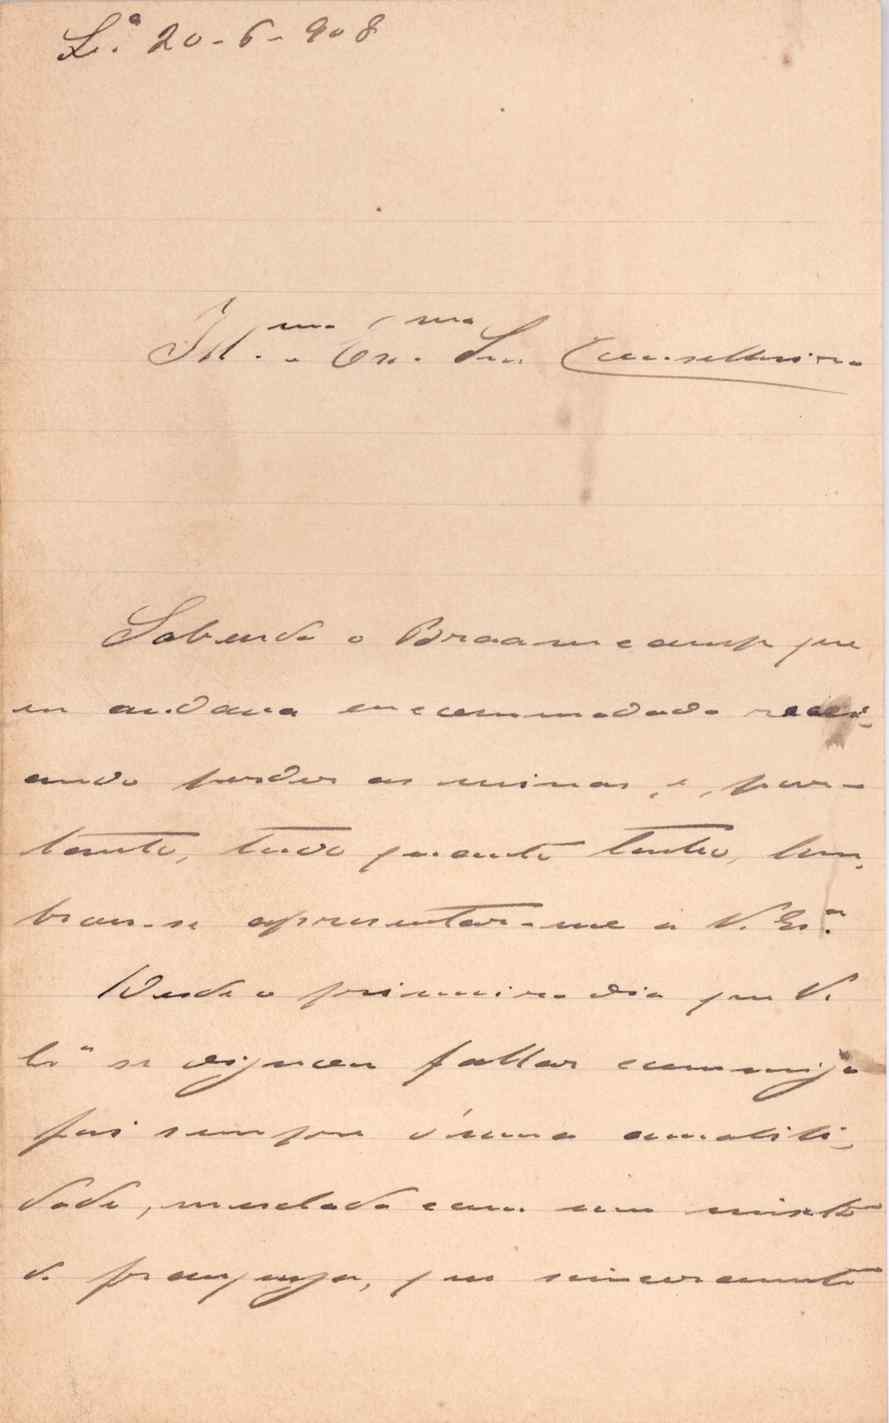 Lª 20-6-908
Ill.mo e Ex.mo Snr. Conselheiro
Sabendo o Braamcamp que
eu andava encommodado rece-
ando perder as minas, e, por-
tanto, tudo quanto tenho, lem-
brou-se apresentar-me a V. Exª.
Desde o primeiro dia que V.
Exª se dignou fallar commigo
foi sempre d'uma amabili-
dade, mesclada com um mixto
de franqueza, que sinceramente